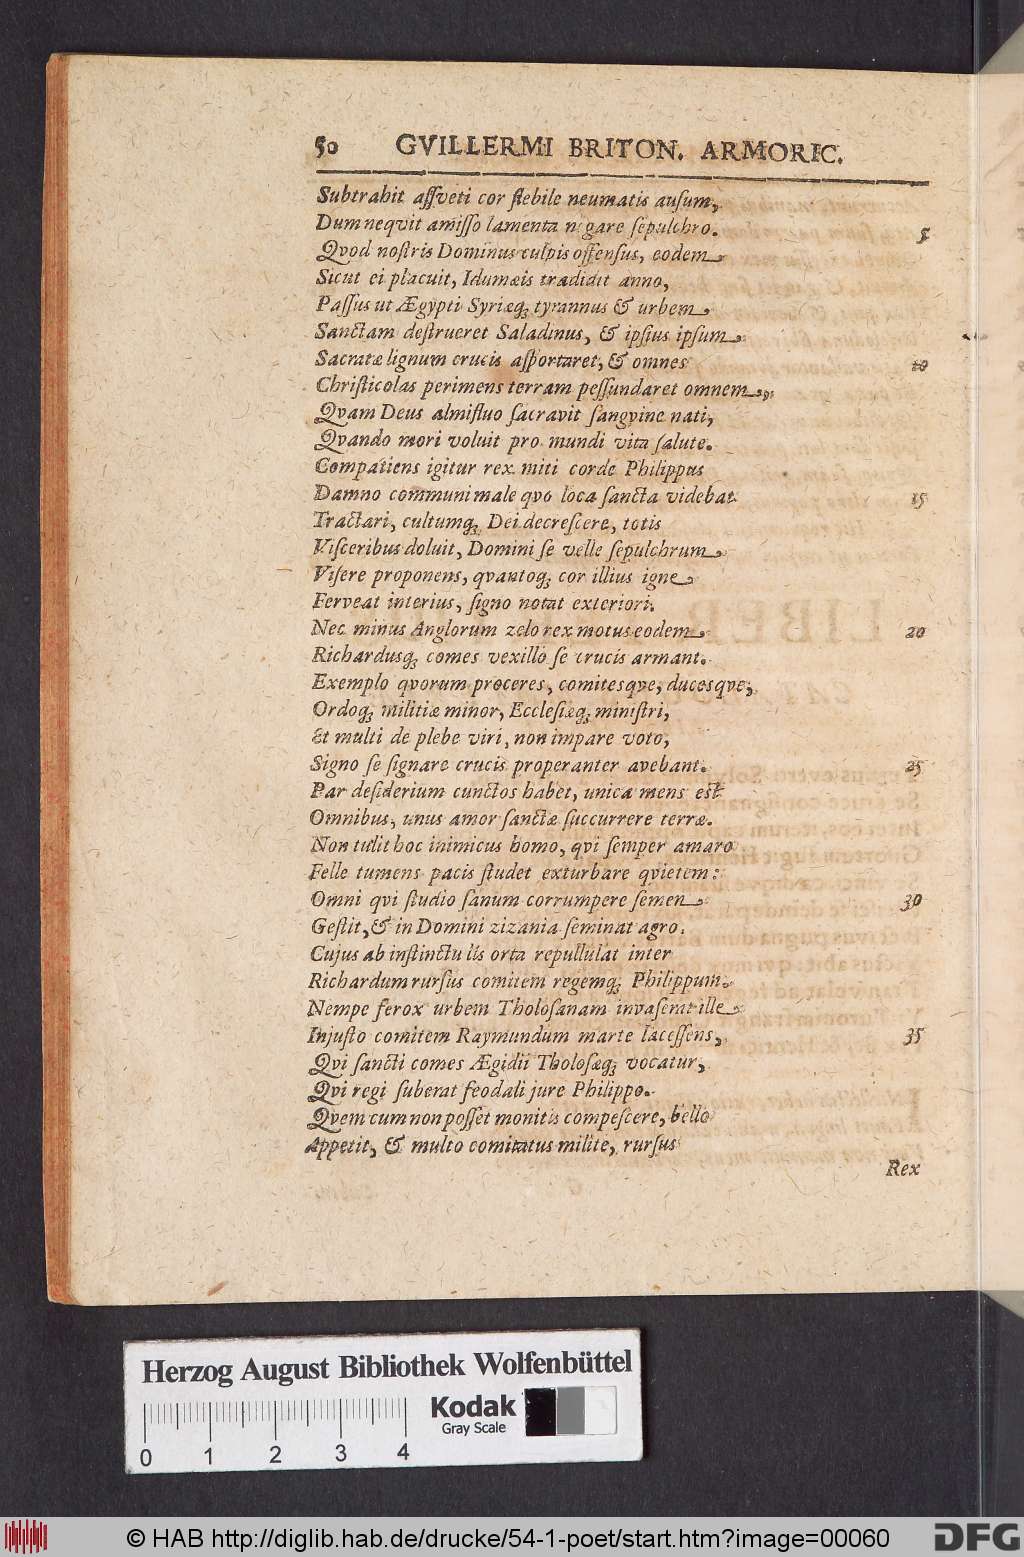 50 GVILLERMI BRITON. ARMORIC.
Subtrahit assveti cor flebile neumatis ausum,
Dum neqvit amisso lamenta negare sepulchro. 5
Qvod nostris Dominus culpis offensus, eodem
Sicut ei placuit, Idumæis tradidit anno,
Passus ut Ægypti Syriæq; tyrannus & urbem
Sanctam destrueret Saladinus, & ipsius ipsum
Sacratæ lignum crucis asportaret, & omnes 10
Christicolas perimens terram pessundaret omnem,
Qvam Deus almifluo sacravit sangvine nati,
Qvando mori voluit pro mundi vita salute.
Compatiens igitur rex miti corde Philippus
Damno communi male qvo loca sancta videbat 15
Tractari, cultumq; Dei decrescere, totis
Visceribus doluit, Domini se velle sepulchrum
Visere proponens, qvantoq; cor illius igne
Ferveat interius, signo notat exteriori.
Nec minus Anglorum zelo rex motus eodem 20
Richardusq; comes vexillo se crucis armant.
Exemplo qvorum proceres, comitesqve, ducesqve,
Ordoq; militiæ minor, Ecclesiæq; ministri,
Et multi de plebe viri, non impare voto,
Signo se signare crucis properanter avebant. 25
Par desiderium cunctos habet, unica mens est
Omnibus, unus amor sanctæ succurrere terræ.
Non tulit hoc inimicus homo, qvi semper amaro
Felle tumens pacis studet exturbare qvietem:
Omni qvi studio sanum corrumpere semen 30
Gestit, & in Domini zizania seminat agro.
Cujus ab instinctu lis orta repullulat inter
Richardum rursus comitem regemq; Philippum.
Nempe ferox urbem Tholosanam invaserat ille
Injusto comitem Raymundum marte lacessens, 35
Qvi sancti comes Ægidii Tholosæq; vocatur,
Qvi regi suberat feodali jure Philippo.
Qvem cum non posset monitis compescere, bello
Appetit, & multo comitatus milite, rursus
Rex
Herzog August Bibliothek Wolfenbüttel
Kodak
Gray Scale
0 1 2 3 4
© HAB http://diglib.hab.de/drucke/54-1-poet/start.htm?image=00060
DFG